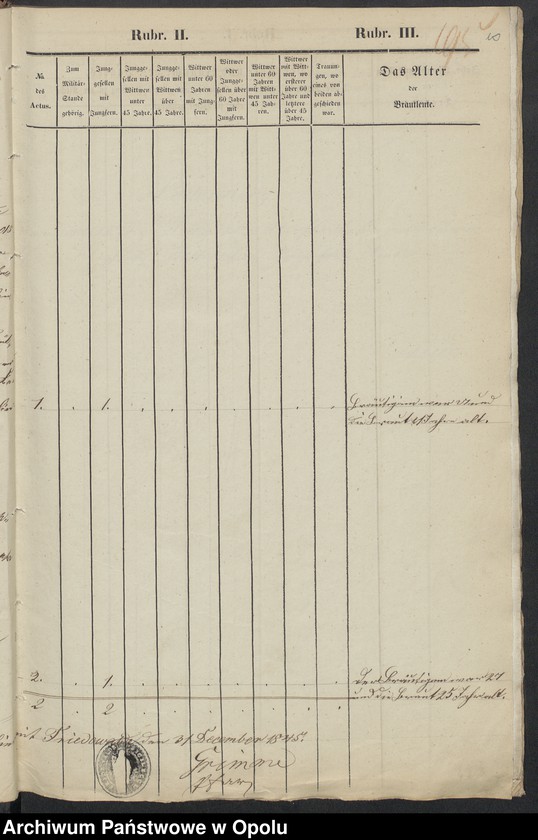 Rubr. II.
Rubr. III.
195
No.
des
Actus.
Zum
Militär-
Stande
gehörig.
Jung-
gesellen
mit
Jungfern.
Jungge-
sellen mit
Wittwen
unter
45 Jahre.
Jungge-
sellen mit
Wittwen
über
45 Jahre.
Wittwer
unter 60
Jahren
mit Jung-
fern.
Wittwer
oder
Jungge-
sellen über
60 Jahre
mit
Jungfern.
Wittwer
unter 60
Jahren
mit Witt-
wen unter
45 Jah-
ren.
Wittwer
mit Witt-
wen, wo
ersterer
über 60
Jahre und
letztere
über 45
Jahre.
Trauun-
gen, wo
eines von
beiden ab-
geschieden
war.
Das Alter
der
Brautleute.
1. 1. Bräutigam war und
die Braut Jahr alt.
2. 1. Der Bräutigam war 27
und die Braut 25 Jahr alt.
2 2
den 31 December 1845.
Grimme
Pfarr
Archiwum Państwowe w Opolu